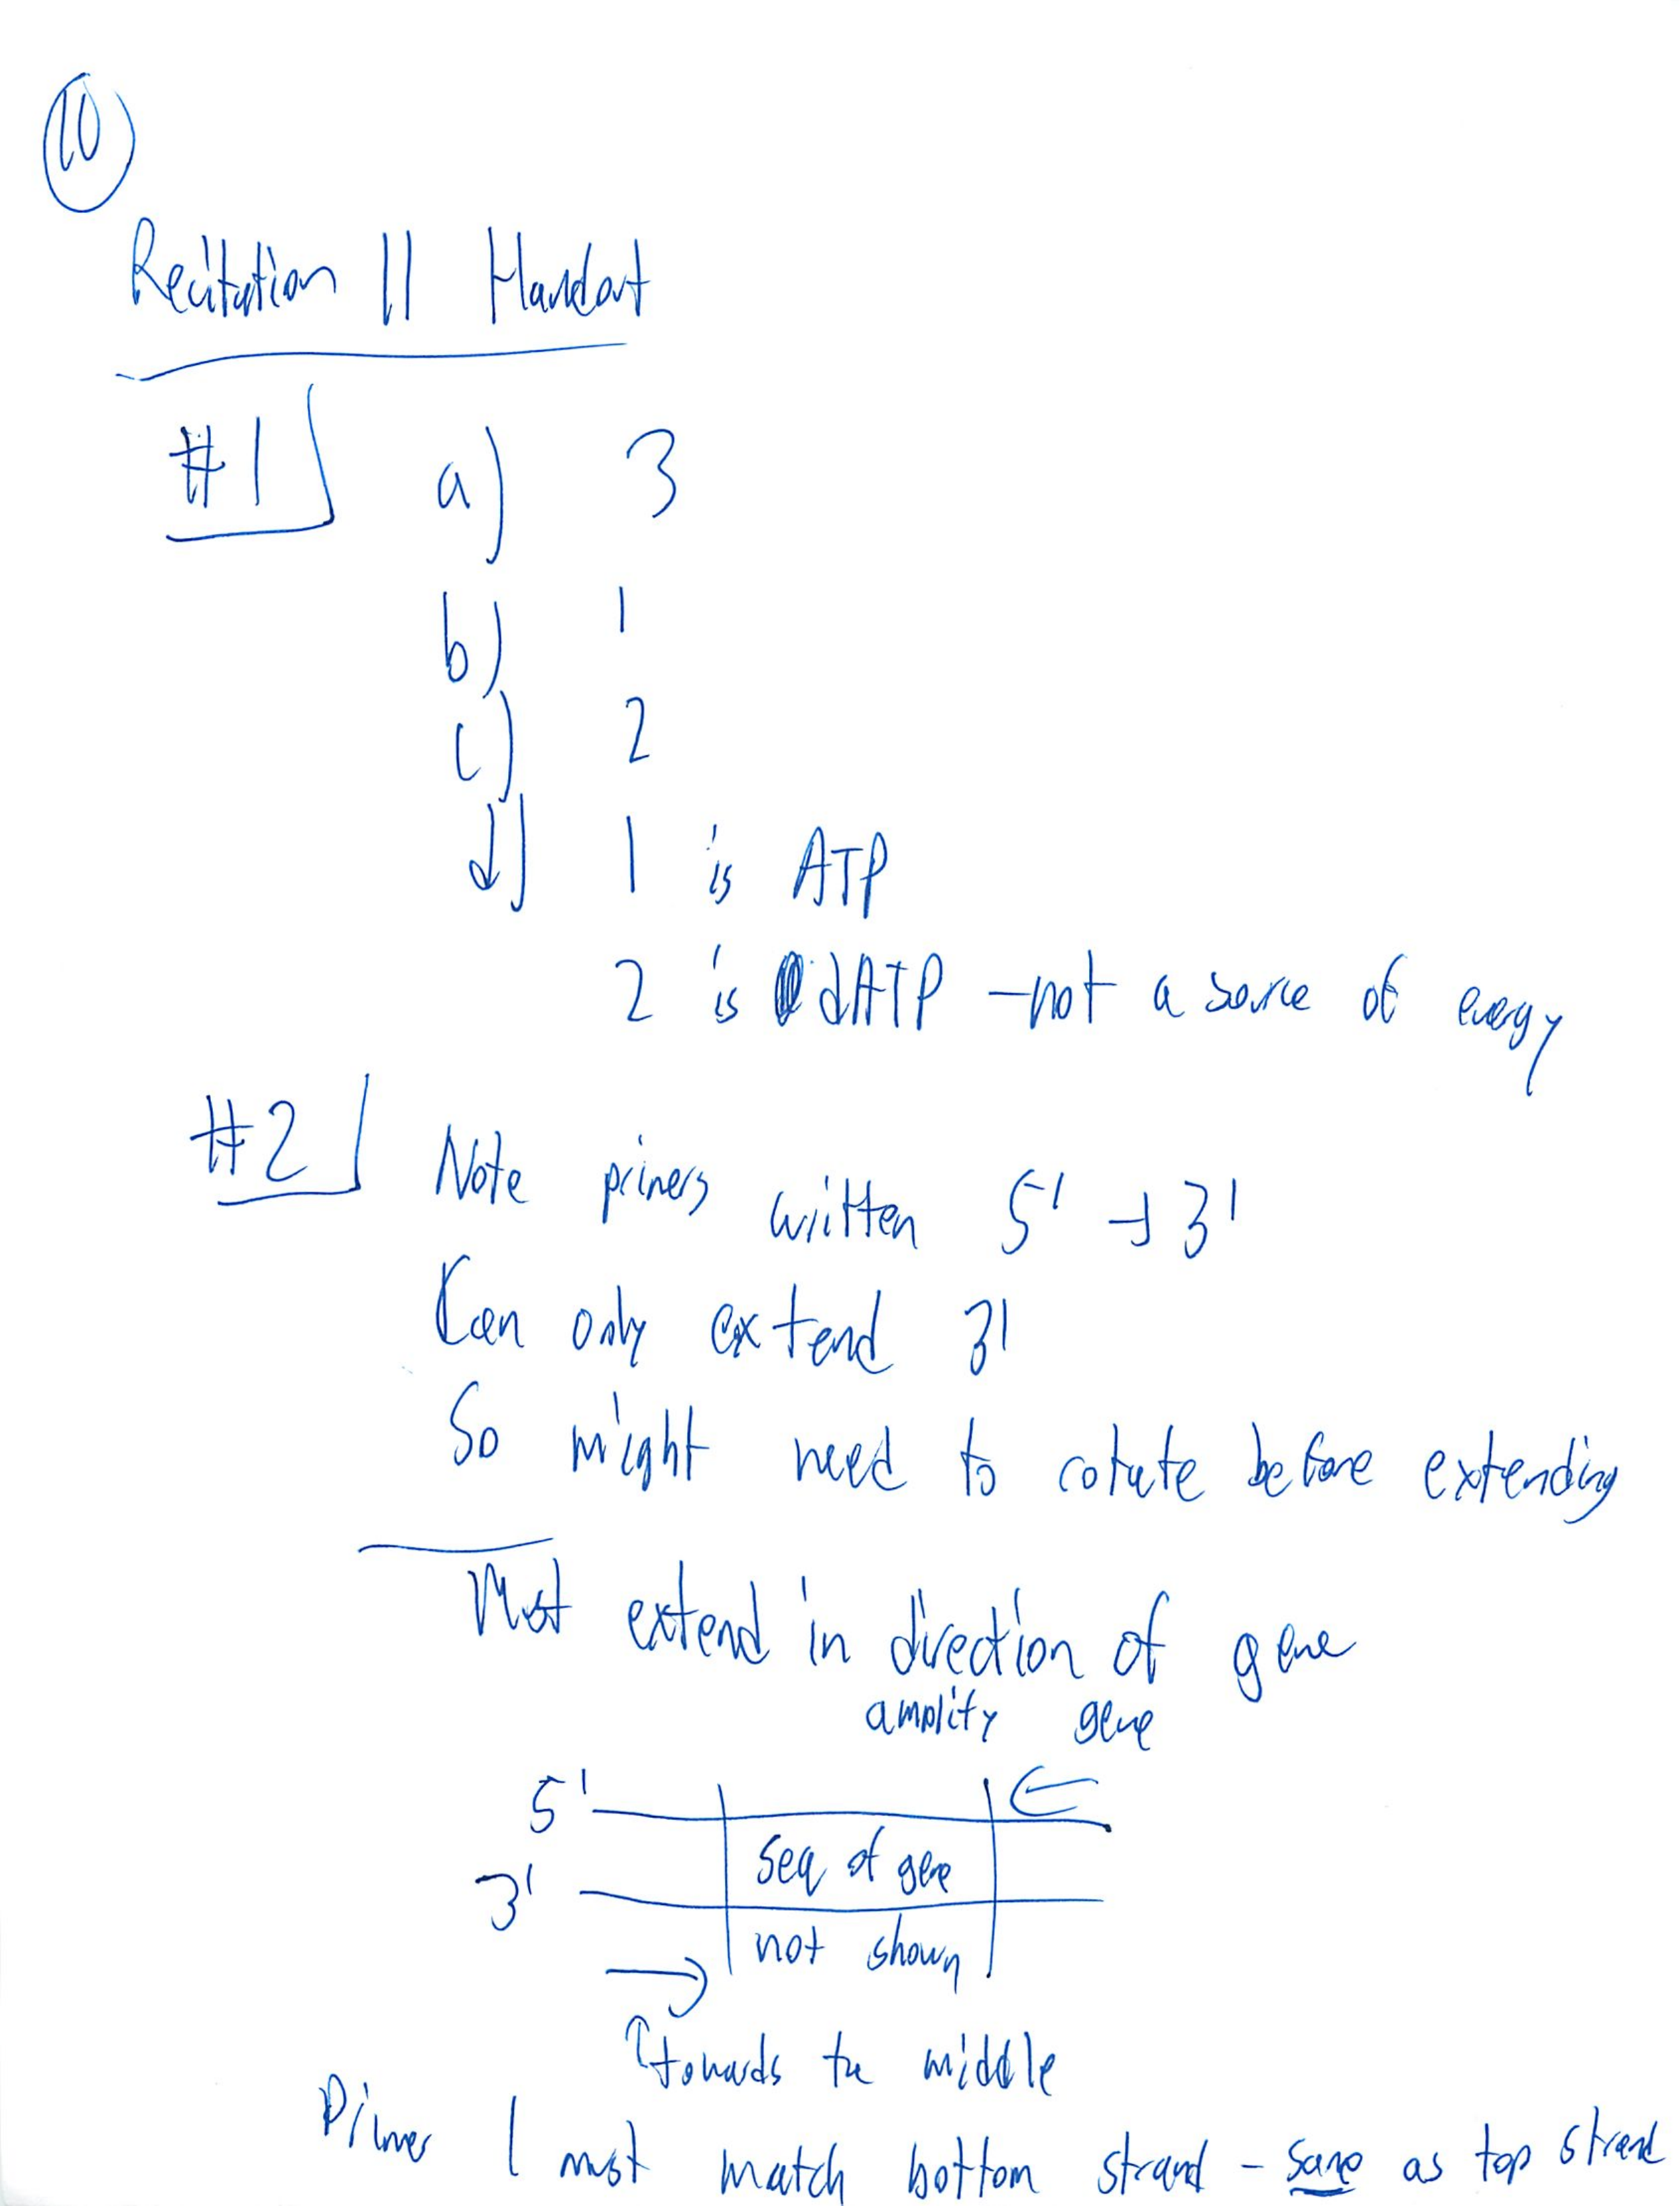 10
Recitation 11 Handout
#1 a) 3
b) 1
c) 2
d) 1 is ATP
2 is dATP - not a source of energy
#2 Note primers written 5' → 3'
Can only extend 3'
So might need to rotate before extending
Must extend in direction of gene
amplify gene
5'
seq of gene
3'
not shown
↑ towards the middle
Primer 1 must match bottom strand - same as top strand